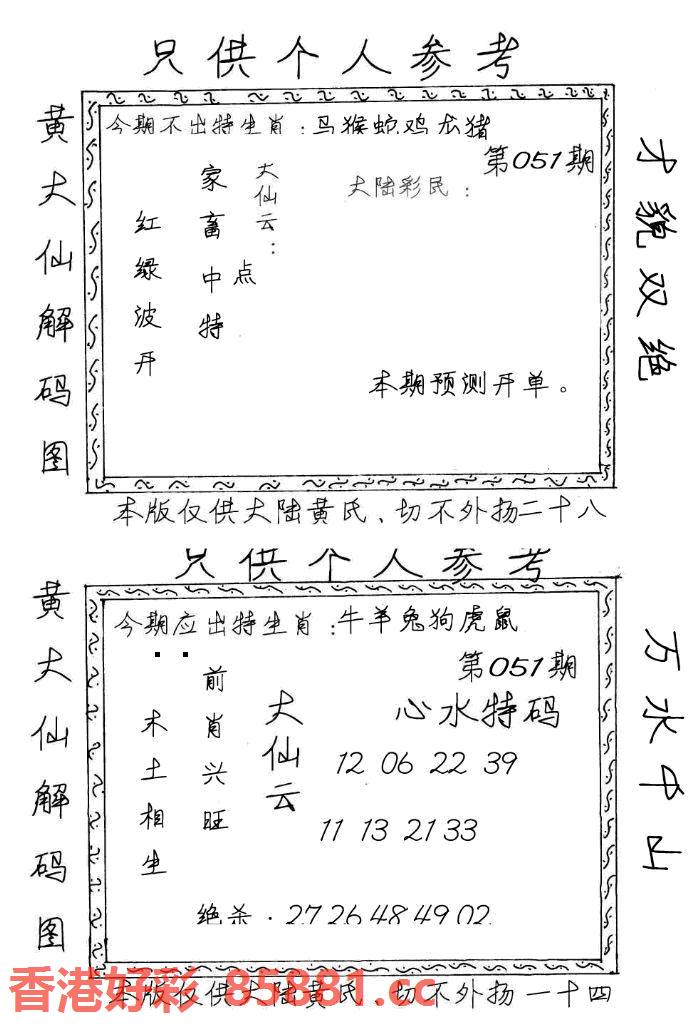 只供个人参考
黄大仙解码图
今期不出特生肖：马猴蛇鸡龙猪
第051期
大仙云：
家畜中特
点
红绿波开
大陆彩民：
本期预测开单。
才貌双绝
本版仅供大陆黄氏、切不外扬二十八
只供个人参考
黄大仙解码图
今期应出特生肖：牛羊兔狗虎鼠
第051期
大仙云
前肖兴旺
木土相生
心水特码
12 06 22 39
11 13 21 33
绝杀·27 26 48 49 02
万水千山
本版仅供大陆黄氏、切不外扬一十四
香港好彩 85881.cc